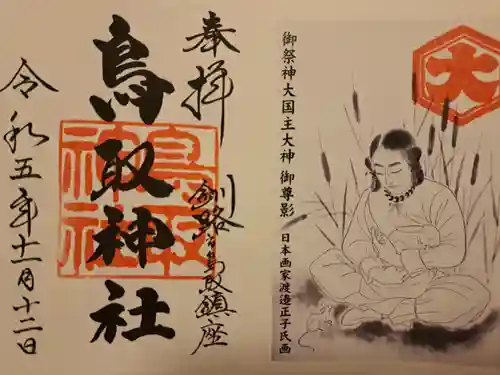 奉拝
鳥取神社
釧路鳥取鎮座
令和五年十一月十二日
鳥取神社
御祭神大国主大神 御尊影
日本画家渡邉正子氏画
大